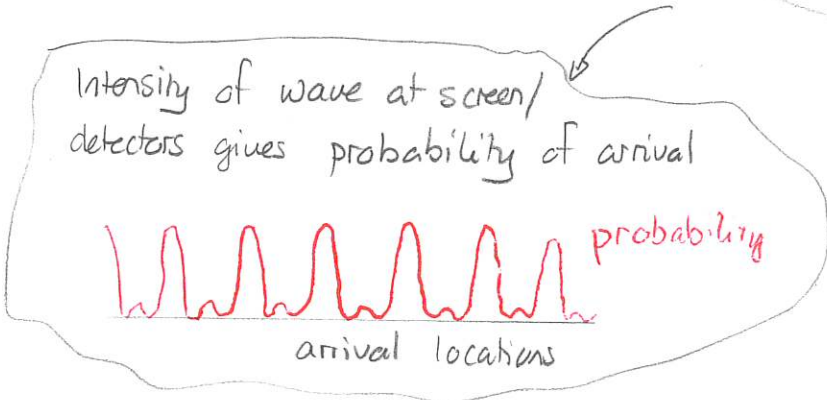 Intensity of wave at screen/
detectors gives probability of arrival
probability
arrival locations